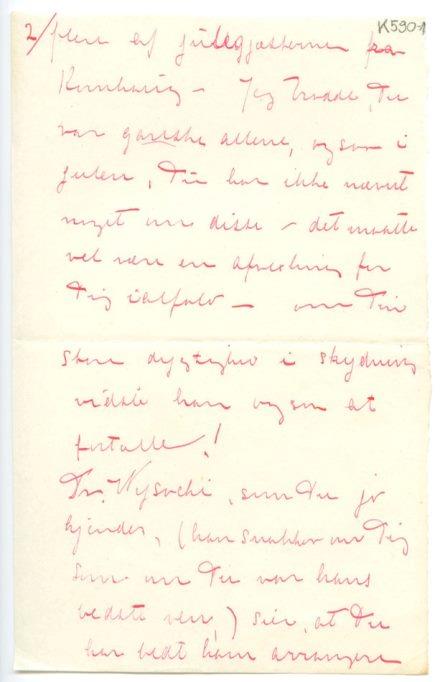 K590-1
2/ flere af julegjæsterne fra
– Jeg troede, Du
var ganske allene, ogsaa i
Julen, Du har ikke nævnt
noget om disse – det maatte
vel være en afvexling for
Dig ialfald – om Din
store dygtighed i skydning
vidste han ogsaa at
fortælle!
Dr. Wysocki, som Du jo
kjender, (han snakker om Dig
som om Du var hans
bedste ven,) sier, at Du
har bedt ham arrangere